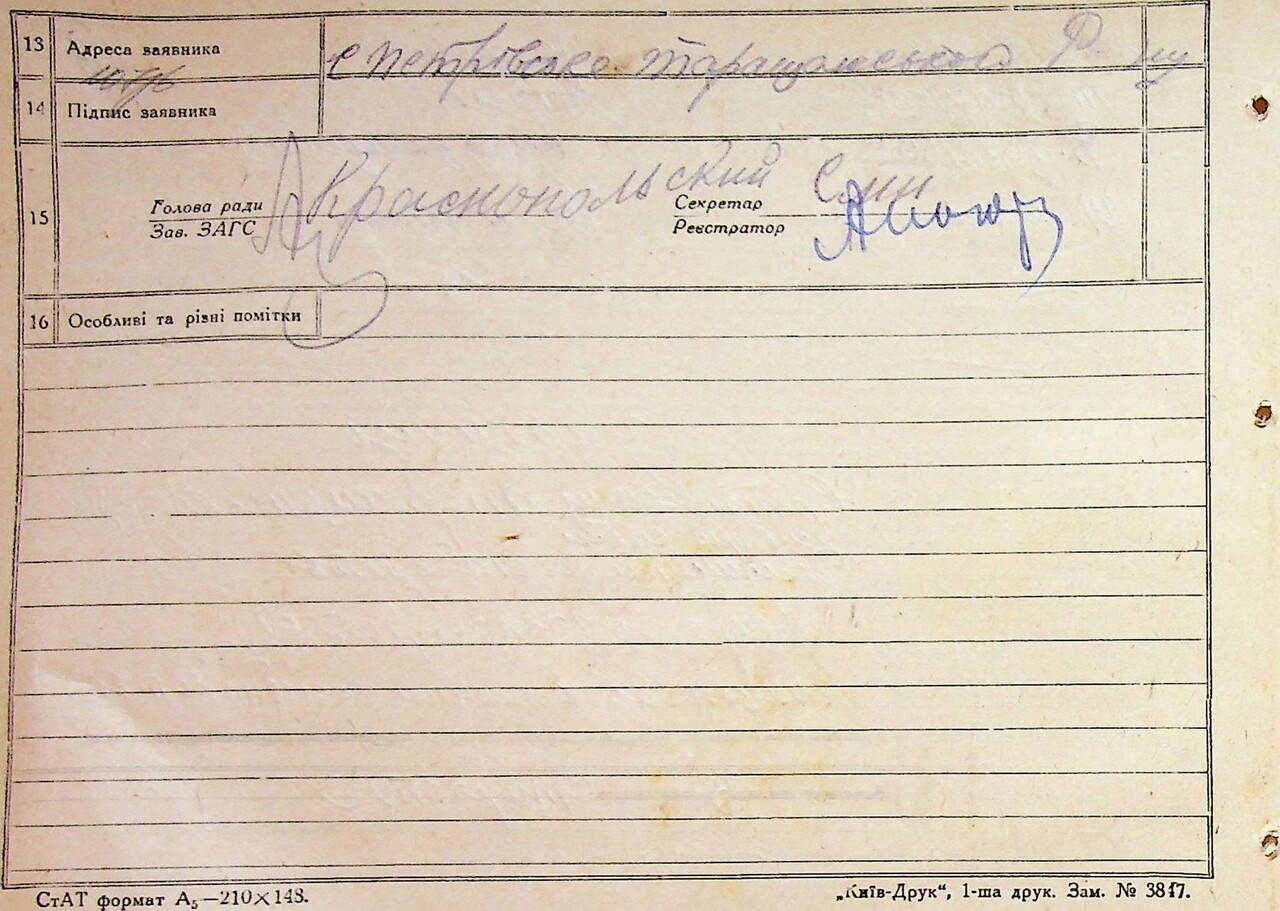 13 Адреса заявника с Петрівське Таращанського Р-ну
14 Підпис заявника
15 Голова ради Краснопольский Секретар
Зав. ЗАГС Реєстратор
16 Особливі та різні помітки
СтАТ формат А₅—210×148.
„Київ-Друк“, 1-ша друк. Зам. № 3847.